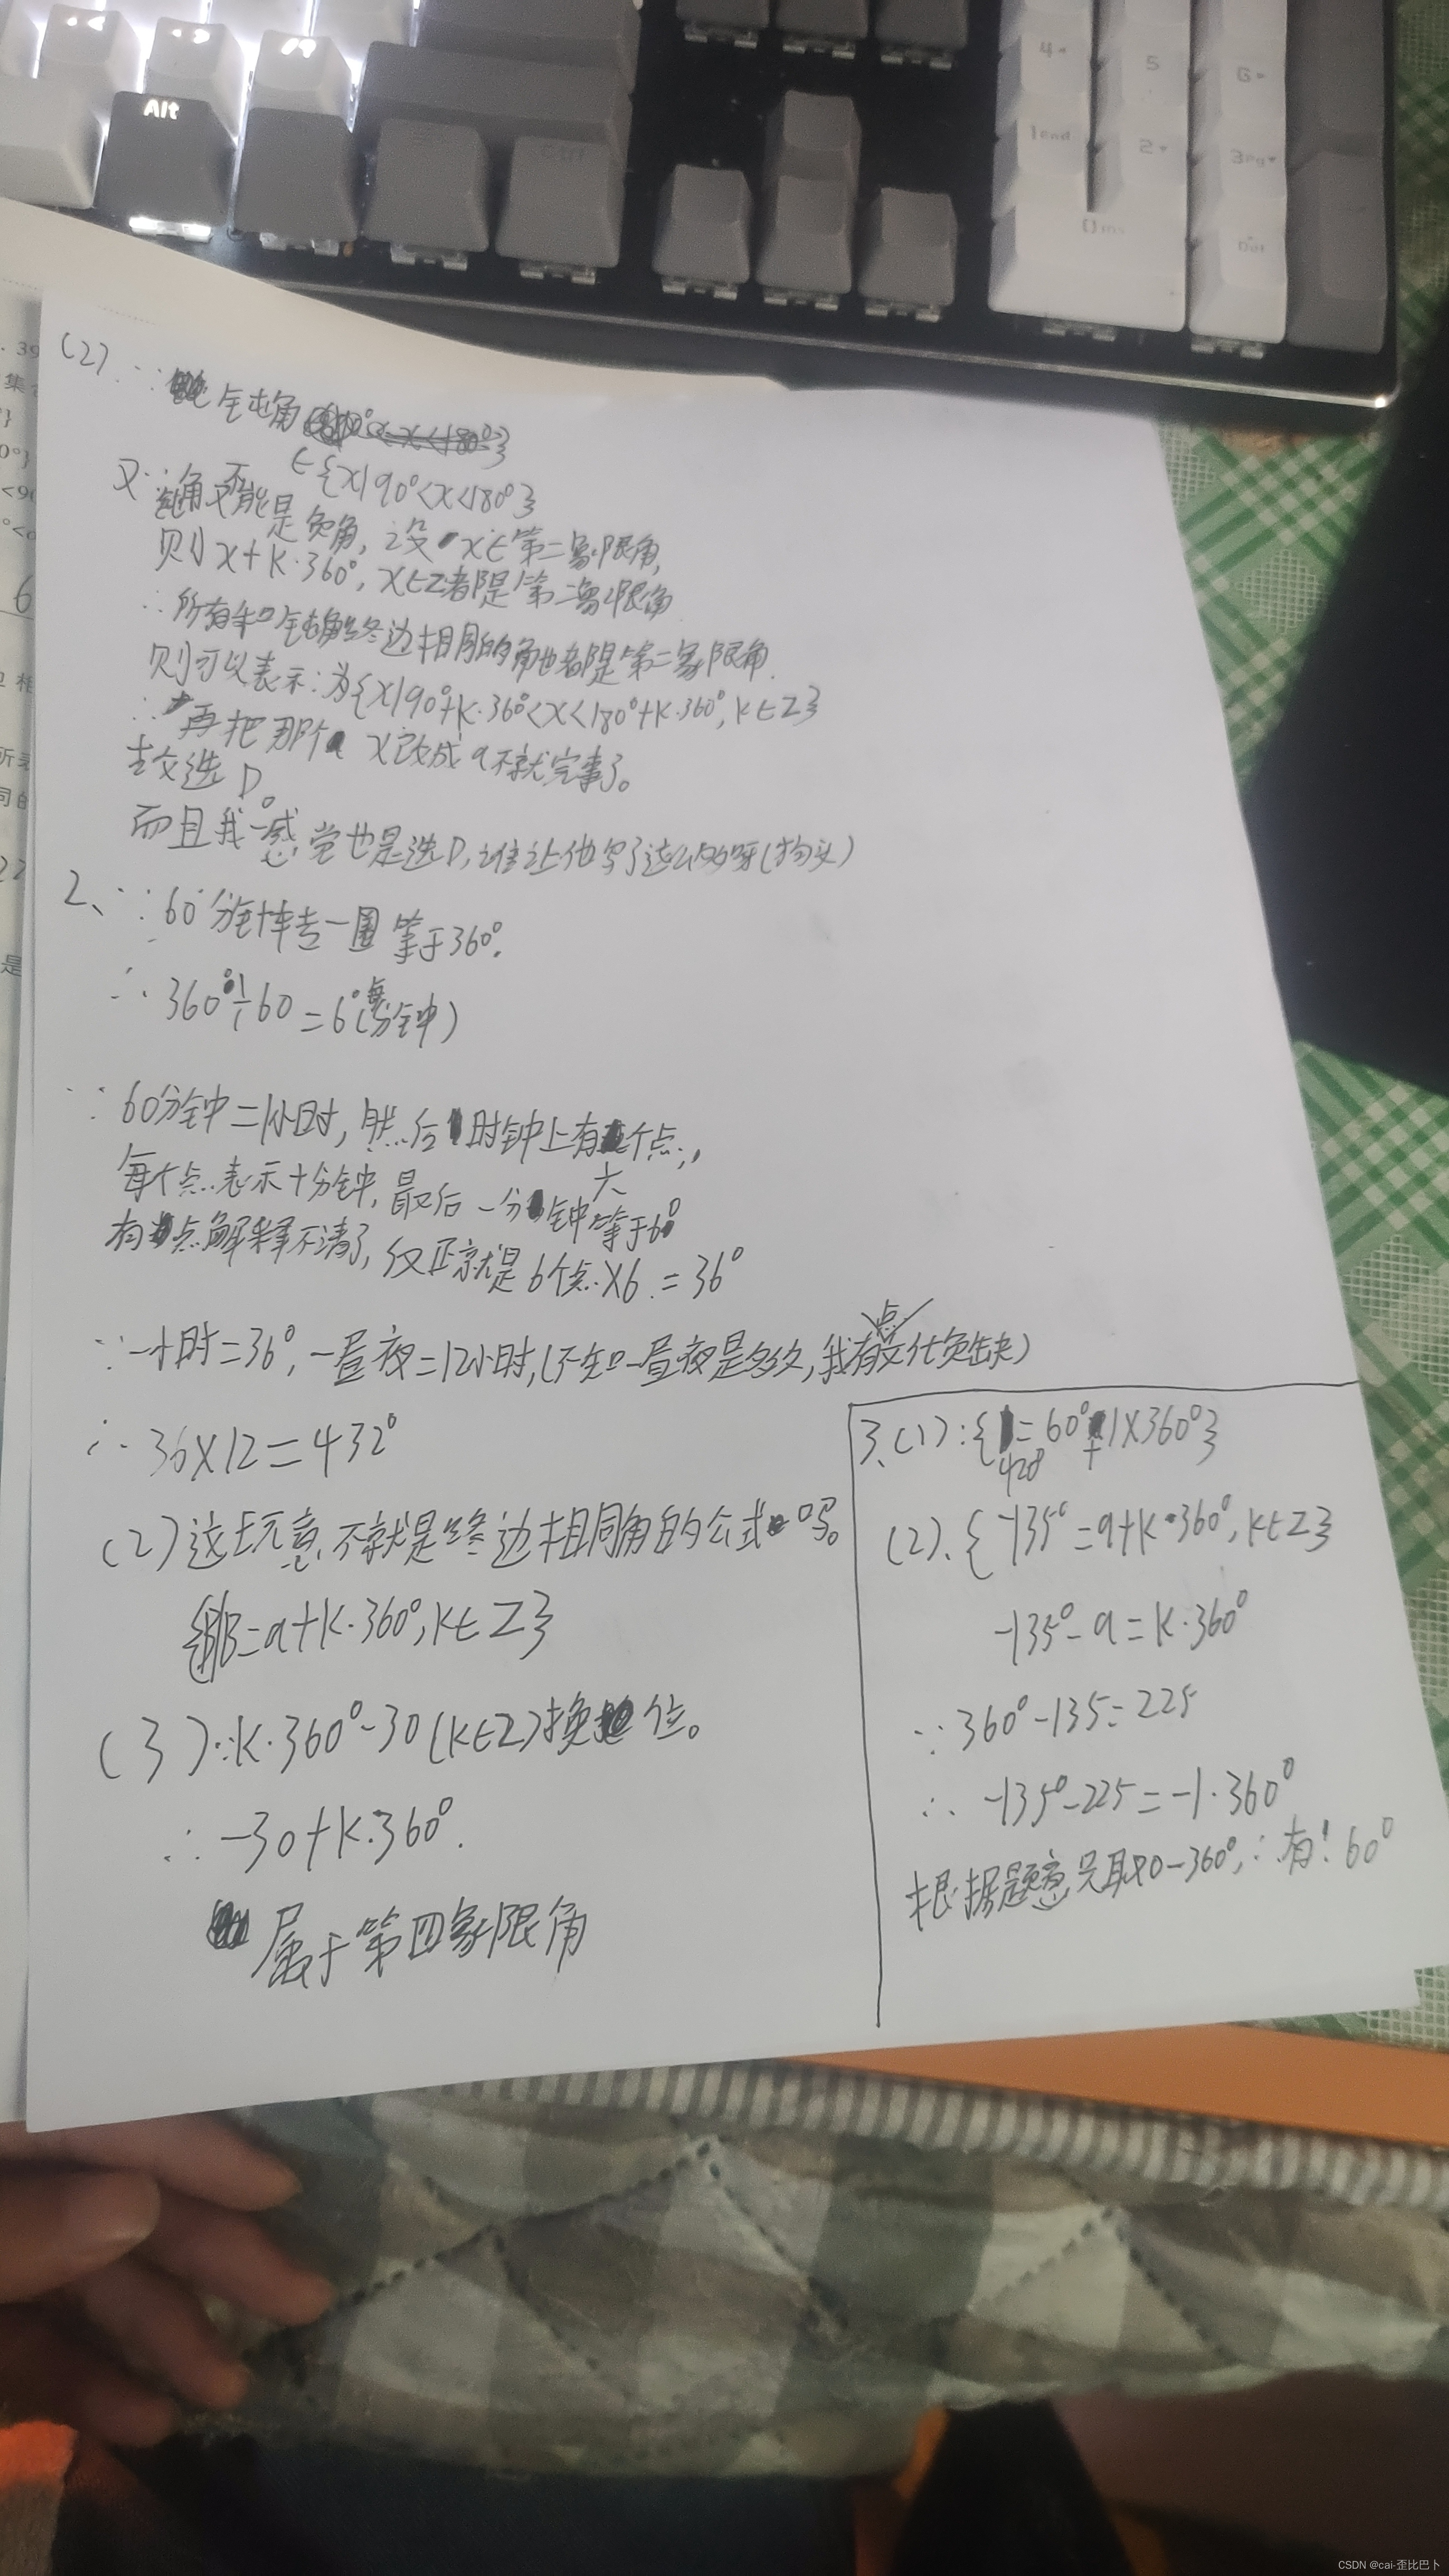 Alt
4
5
6
1end
2
3pg
0ins
Del
. 39
集
0°}
<90
6
(2) ∵ 钝角
∈{x|90°<x<180°}
又∵钝角不可能是负角, 设x∈第二象限角,
则x+k·360°, x∈Z都是第二象限角
∴所有和钝角终边相同的角也都是第二象限角.
则可以表示:为{x|90°+k·360°<x<180°+k·360°, k∈Z}
∴再把那个x改成a不就完事了。
故选D。
而且我一感觉也是选D,谁让他写了这么多呀(狗头)
2、∵60分钟转一圈等于360°.
∴360°÷60=6°(每分钟)
∵60分钟=1小时,然后时钟上有六个点,,
每个点表示十分钟,最后一分钟等于6°
有点解释不清了,反正就是6个点×6.=36°
∵一小时=36°,一昼夜=12小时,(不知一昼夜是多久,我有点文化负缺)
∴36×12=432°
(2)这玩意不就是终边相同角的公式吗。
{β|β=a+k·360°,k∈Z}
(3)∵k·360°-30(k∈Z)换位。
∴-30+k·360°.
属于第四象限角
3、(1):{428=60°+1×360°}
(2)、{-135°=a+k·360°,k∈Z}
-135°-a=k·360°
∵360°-135=225
∴-135°-225=-1·360°
根据题意只取0-360°,∴有!60°
CSDN @cai-歪比巴卜